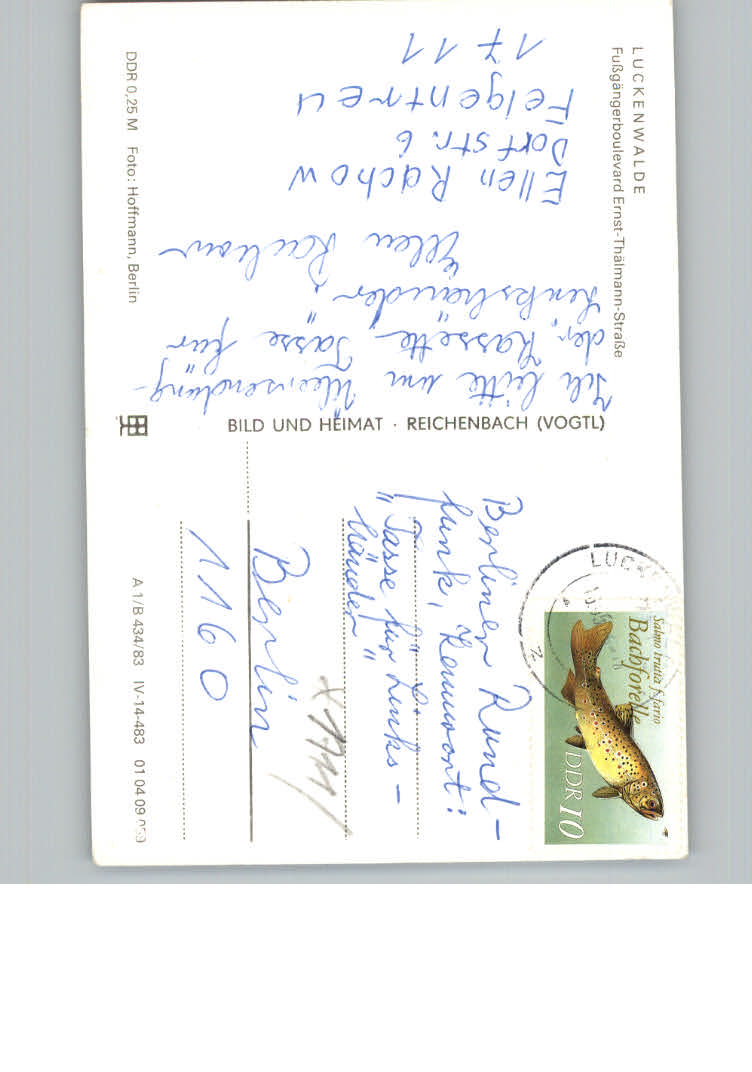 LUCKENWALDE
Fußgängerboulevard Ernst-Thälmann-Straße
Ellen Rachow
Dorfstr. 6
Felgentreu
1711
Ich bitte um Übersendung
der "Kassette, Tasse für
Linkshänder".
Ellen Rachow
DDR 0,25 M Foto: Hoffmann, Berlin
BILD UND HEIMAT · REICHENBACH (VOGTL)
Berliner Rund-
funk, Kennwort:
"Tasse für Links-
händer"
Berlin
1160
A 1/B 434/83 IV-14-483 01 04 09
Salmo trutta f. fario
Bachforelle
DDR 10
LUCK